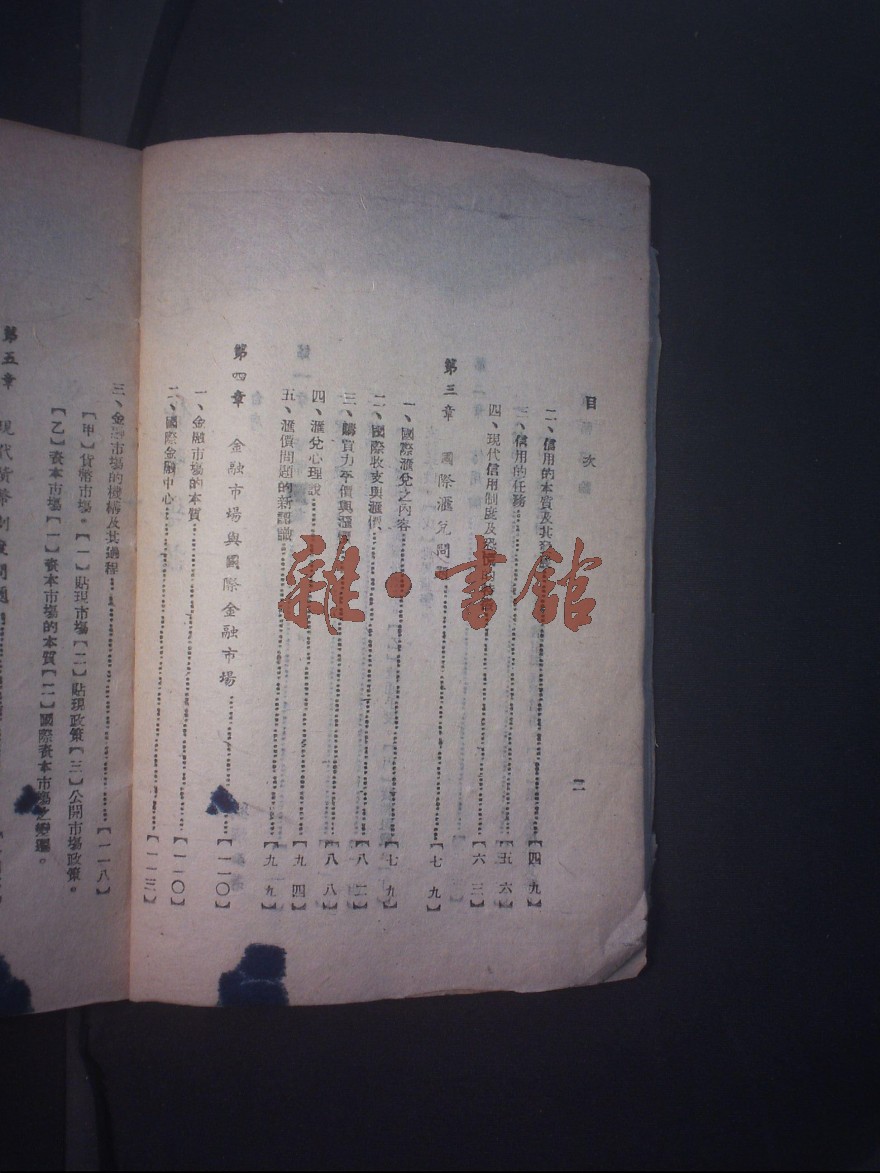 目次
二
二、信用的本質及其發……【四九】
三、信用的任務……【五六】
四、現代信用制度及……【六三】
第三章 國際滙兌問……【七九】
一、國際滙兌之內容……【七九】
二、國際收支與滙價……【八二】
三、購買力平價與滙……【八八】
四、滙兌心理說……【九四】
五、滙價問題的新認識……【九九】
第四章 金融市場與國際金融市場……【一一〇】
一、金融市場的本質……【一一〇】
二、國際金融中心……【一一三】
三、金融市場的機構及其過程……【一一八】
【甲】貨幣市場。【一】貼現市場【二】貼現政策【三】公開市場政策。
【乙】資本市場【一】資本市場的本質【二】國際資本市場之變遷。
第五章 現代貨幣制度問題
雜·書館